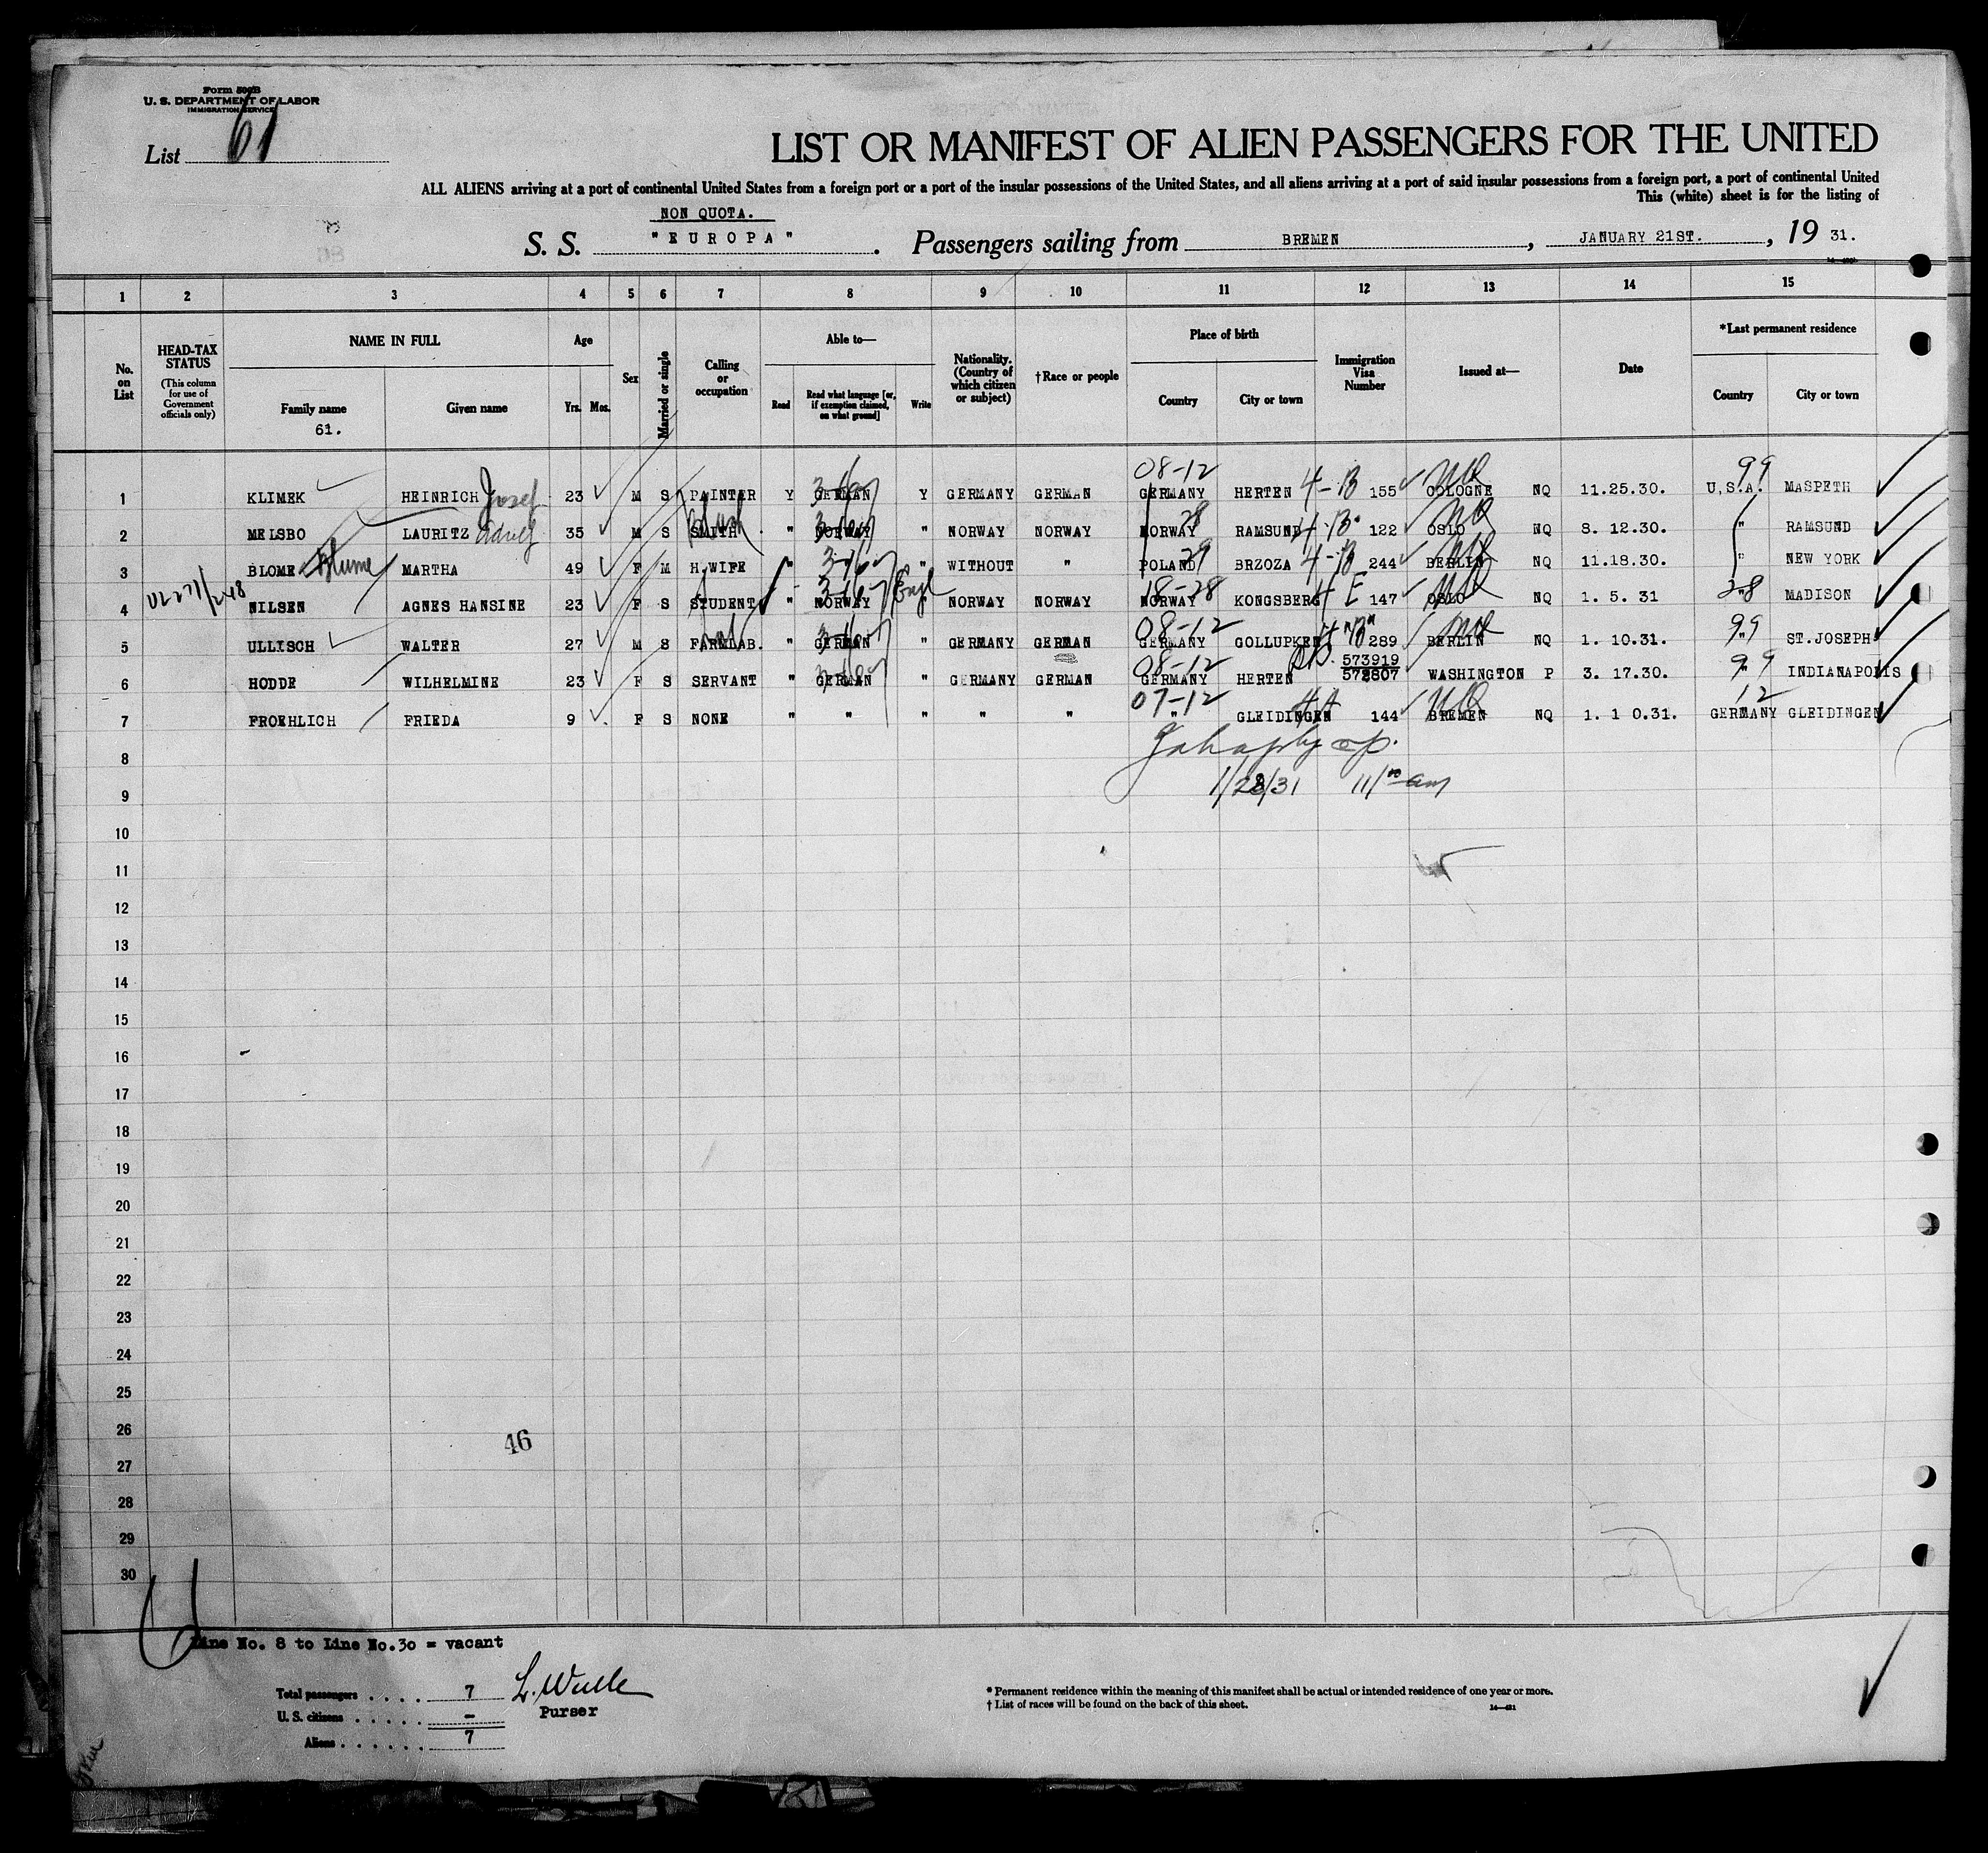 Form 500B
U. S. DEPARTMENT OF LABOR
IMMIGRATION SERVICE
List 61
LIST OR MANIFEST OF ALIEN PASSENGERS FOR THE UNITED
ALL ALIENS arriving at a port of continental United States from a foreign port or a port of the insular possessions of the United States, and all aliens arriving at a port of said insular possessions from a foreign port, a port of continental United
This (white) sheet is for the listing of
NON QUOTA.
S. S. "EUROPA". Passengers sailing from BREMEN, JANUARY 21ST., 19 31.
1 2 3 4 5 6 7 8 9 10 11 12 13 14 15
No. on List
HEAD-TAX STATUS (This column for use of Government officials only)
NAME IN FULL
Family name
61.
Given name
Age
Yrs. Mos.
Sex
Married or single
Calling or occupation
Able to—
Read
Read what language [or, if exemption claimed, on what ground]
Write
Nationality. (Country of which citizen or subject)
†Race or people
Place of birth
Country
City or town
Immigration Visa Number
Issued at—
Date
*Last permanent residence
Country
City or town
08-12 99
1 KLIMEK HEINRICH Josef 23 M S PAINTER Y GERMAN Y GERMANY GERMAN GERMANY HERTEN 4-B 155 COLOGNE NQ 11.25.30. U.S.A. MASPETH
2 MELSBO LAURITZ 35 M S SMITH " NORWAY " NORWAY NORWAY NORWAY RAMSUND 4-B 122 OSLO NQ 8. 12.30. " RAMSUND
3 BLOME Blume MARTHA 49 F M H.WIFE " " WITHOUT " POLAND BRZOZA 4-B 244 BERLIN NQ 11.18.30. " NEW YORK
4 NILSEN AGNES HANSINE 23 F S STUDENT " NORWAY Engl " NORWAY NORWAY NORWAY KONGSBERG 4 E 147 OSLO NQ 1. 5. 31 28 MADISON
08-12 99
5 ULLISCH WALTER 27 M S FARMLAB. " GERMAN " GERMANY GERMAN GERMANY GOLLUPKEN 4"B" 289 BERLIN NQ 1. 10.31. " ST.JOSEPH
08-12 573919 99
6 HODDE WILHELMINE 23 F S SERVANT " GERMAN " GERMANY GERMAN GERMANY HERTEN 572807 WASHINGTON P 3. 17.30. " INDIANAPOLIS
07-12 12
7 FROEHLICH FRIEDA 9 F S NONE " " " " " " GLEIDINGEN 4A 144 BREMEN NQ 1. 1 0.31. GERMANY GLEIDINGEN
8
1/28/31 11/00 am
9
10
11
12
13
14
15
16
17
18
19
20
21
22
23
24
25
26
46
27
28
29
30
Line No. 8 to Line No.30 = vacant
Total passengers . . . . 7
L. Wulle
Purser
U. S. citizens . . . . . –
Aliens . . . . . . 7
* Permanent residence within the meaning of this manifest shall be actual or intended residence of one year or more.
† List of races will be found on the back of this sheet.
14—421